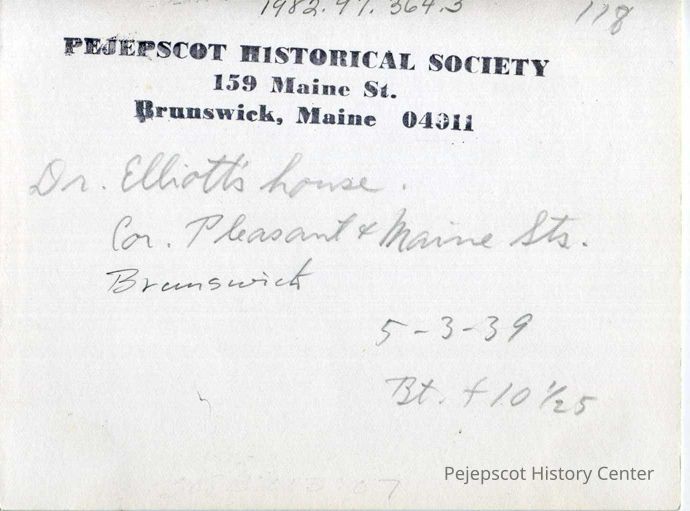 1982.97.364.3 118
PEJEPSCOT HISTORICAL SOCIETY
159 Maine St.
Brunswick, Maine 04011
Dr. Elliott's house.
Cor. Pleasant & Maine Sts.
Brunswick
5-3-39
Bt. f 10 1/25
Pejepscot History Center